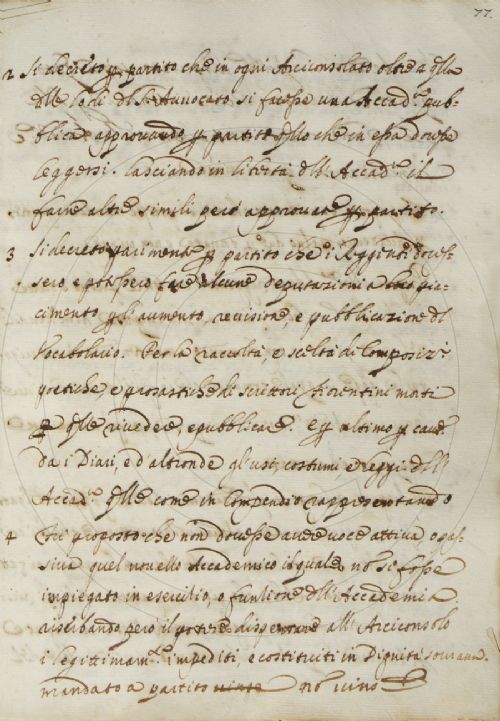 77.
2 Si decretò p partito che in ogni Arciconsolato oltre a qlla
dlle lodi dl S. Avvocato si facesse una Accad.ᵃ pub-
blica approvando p partito qllo che in essa dovesse
leggersi. lasciando in libertà dll' Accad.ᵃ il
farne altre simili però approvate p partito.
3 Si decretò parimente p partito che i Reggenti doves-
sero, e potessero fare alcune deputazioni a loro pia-
cimento p l'aumento, revisione, e pubblicazione dl
Vocabolario. Per la raccolta, e scelta di Composiz.ⁱ
poetiche, e prosastiche di scrittori fiorentini morti
p qlle rivedere, e pubblicare. e p ultimo p cavare
da i Diari, ed altronde gl'usi, costumi e leggi dll'
Accad.ᵃ qlle come in Compendio rappresentando
4 Fu proposto che non dovesse avere voce attiva o pas-
siva quel novello Accademico il quale nō si fosse
impiegato in esercizio, o funzione dll' Accademia.
riserbando però il potere dispensare all' Arciconsolo
i legittimam.ᵗᵉ impediti, e costituiti in Dignità
mandato a partito nō vinto